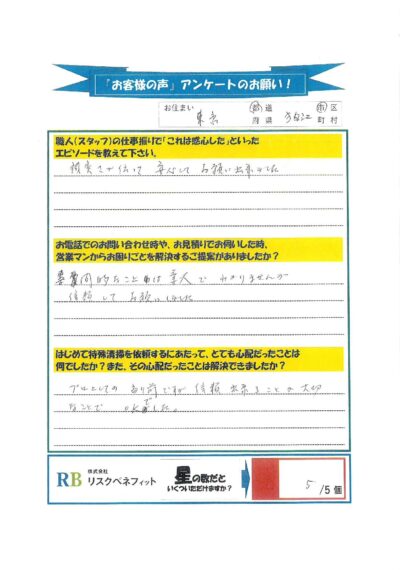 「お客様の声」アンケートのお願い！
お住まい 東京 都道府県 狛江 市区町村
職人(スタッフ)の仕事振りで「これは感心した」といった
エピソードを教えて下さい。
誠実さが伝って 安心して お願い出来ました
お電話でのお問い合わせ時や、お見積りでお伺いした時、
営業マンからお困りごとを解決するご提案がありましたか？
専門的なことは素人でわかりませんが
信頼してお願いしました
はじめて特殊清掃を依頼するにあたって、とても心配だったことは
何でしたか？また、その心配だったことは解決できましたか？
プロとしての 当り前ですが 信頼出来ることが大切
なことで した。
RB 株式会社 リスクベネフィット
星の数だと
いくついただけますか？
5 /5個